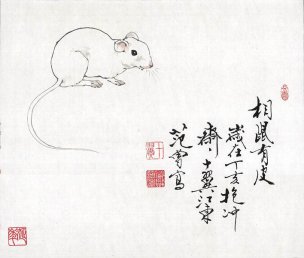 相鼠有皮
歲在丁亥抱冲
齋十翼江東
范曾寫